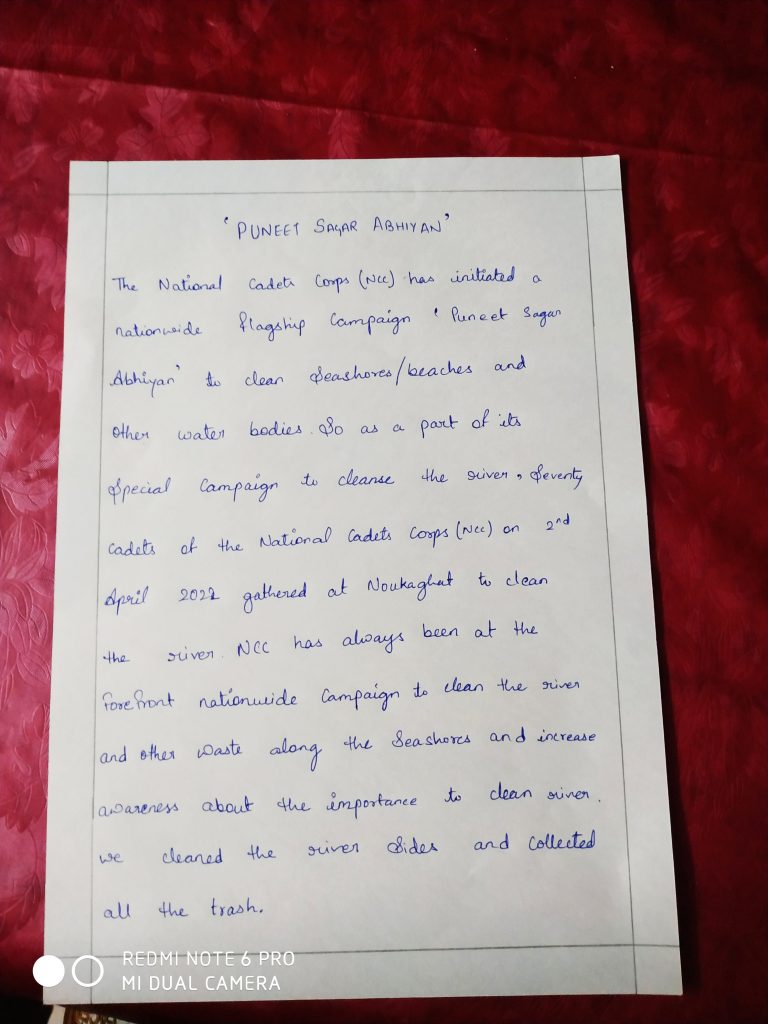 'PUNEET SAGAR ABHIYAN'
The National Cadets Corps (NCC) has initiated a
nationwide flagship Campaign 'Puneet Sagar
Abhiyan' to clean Seashores/beaches and
other water bodies. So as a part of its
Special Campaign to cleanse the river, Seventy
Cadets of the National Cadets Corps (NCC) on 2nd
April 2022 gathered at Noukaghat to clean
the river. NCC has always been at the
forefront nationwide Campaign to clean the river
and other waste along the Seashores and increase
awareness about the importance to clean river.
we cleaned the river Sides and Collected
all the trash.
REDMI NOTE 6 PRO
MI DUAL CAMERA